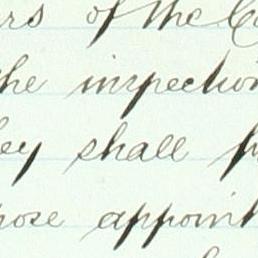 rs of the Co
the inspection
ey shall h
pose appoint